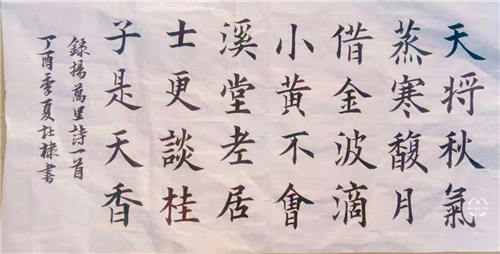 天將秋氣
蒸寒馥月
借金波滴
小黃不會
溪堂老居
士更談桂
子是天香
錄揚萬里詩一首
丁酉季夏杜棣書